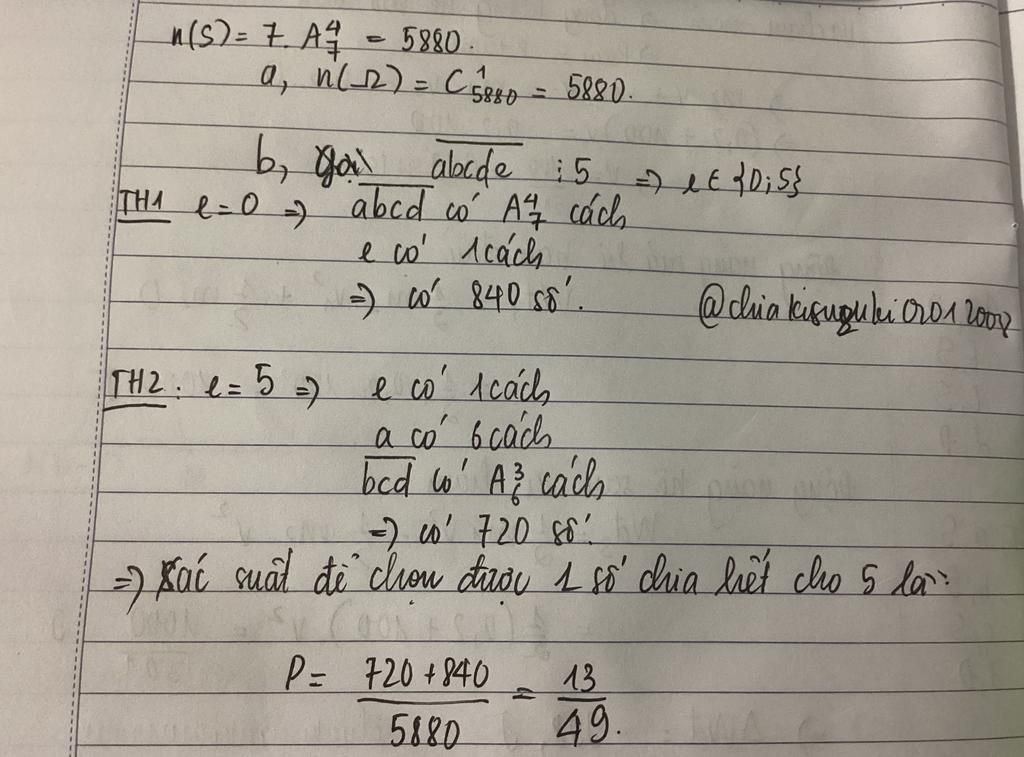 n(S) = 7. A⁴₇ = 5880.
a, n(Ω) = C¹₅₈₈₀ = 5880.
b, gọi abcde ⋮ 5 => e ∈ {0;5}
TH1 e=0 => abcd có A⁴₇ cách
e có 1 cách
=> có 840 số.
@chiakisuzuki02012008
TH2: e=5 => e có 1 cách
a có 6 cách
bcd có A³₆ cách
=> có 720 số.
=> Xác suất để chọn được 1 số chia hết cho 5 là:
P = (720+840)/5880 = 13/49.